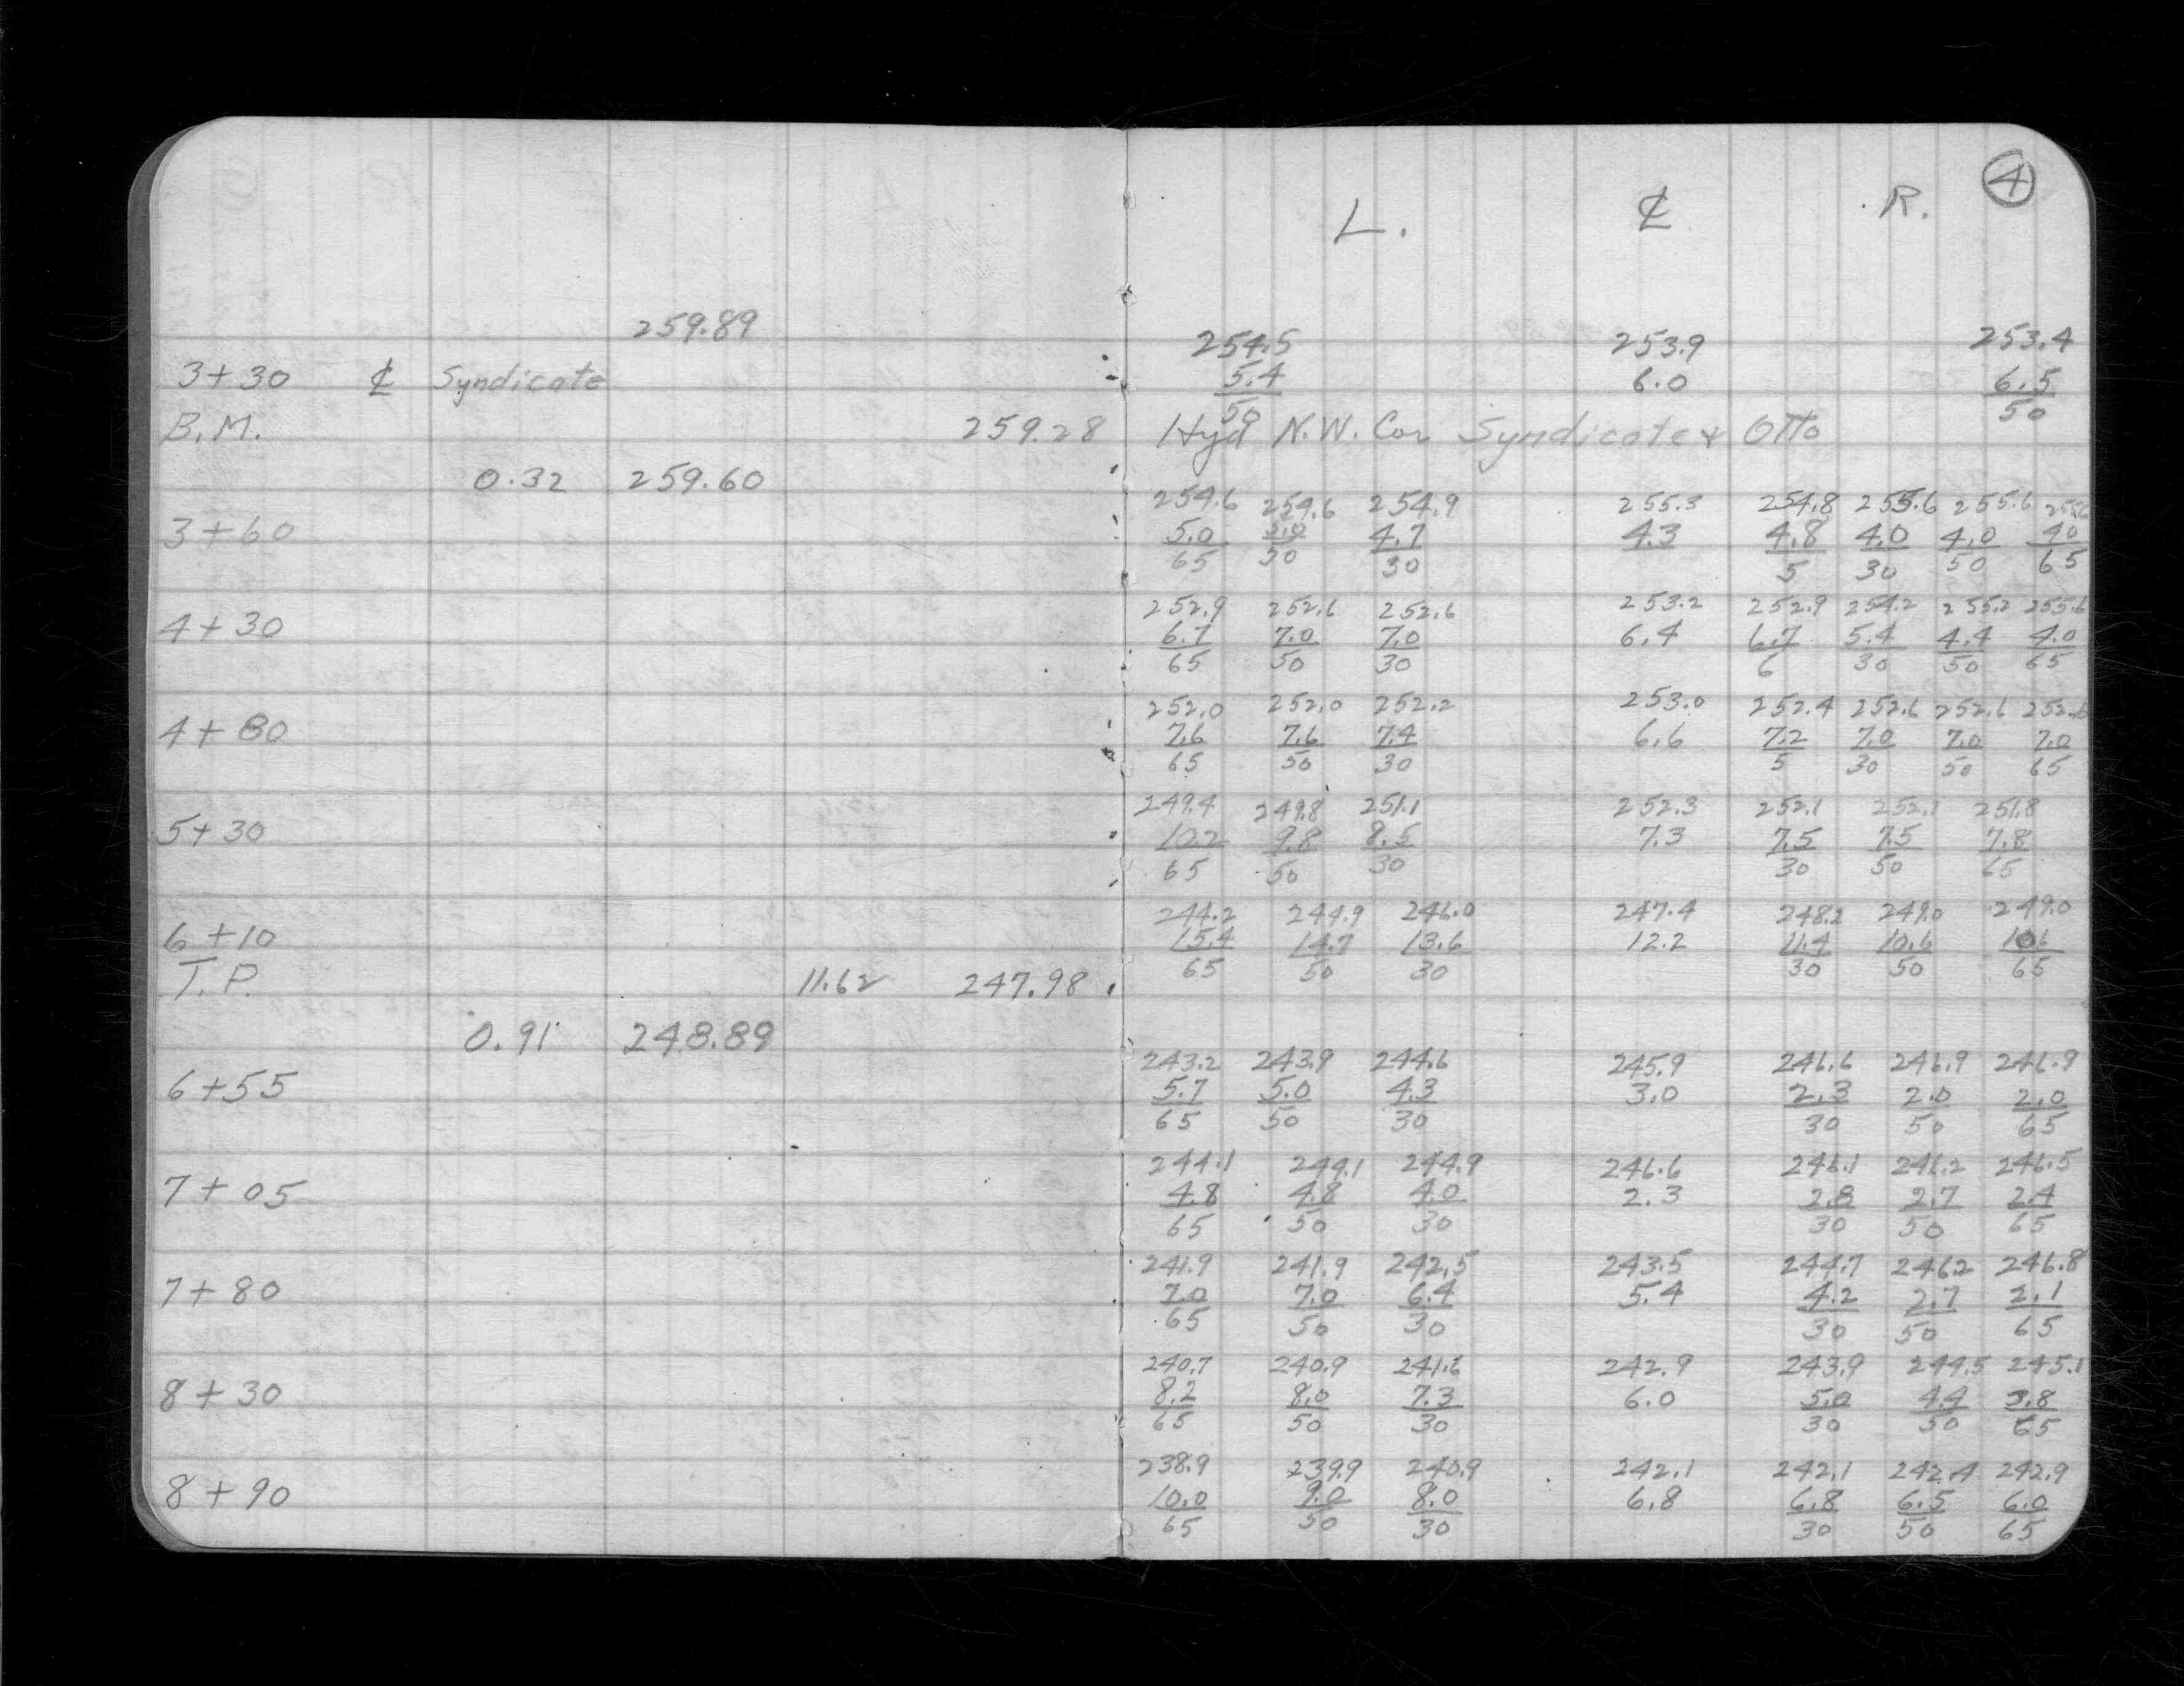 L. ℄ R. 4
259.89 254.5 253.9 253.4
3+30 ℄ Syndicate 5.4 6.0 6.5
50 50
B.M. 259.28 Hyd N.W. Cor Syndicate & Otto
0.32 259.60
254.6 254.6 254.9 255.3 254.8 255.6 255.6 255.6
3+60 5.0 5.0 4.7 4.3 4.8 4.0 4.0 4.0
65 50 30 5 30 50 65
252.9 252.6 252.6 253.2 252.9 254.2 255.2 255.6
4+30 6.7 7.0 7.0 6.4 6.7 5.4 4.4 4.0
65 50 30 6 30 50 65
252.0 252.0 252.2 253.0 252.4 252.6 252.6 252.6
4+80 7.6 7.6 7.4 6.6 7.2 7.0 7.0 7.0
65 50 30 5 30 50 65
249.4 249.8 251.1 252.3 252.1 252.1 251.8
5+30 10.2 9.8 8.5 7.3 7.5 7.5 7.8
65 50 30 30 50 65
244.2 244.9 246.0 247.4 248.2 249.0 249.0
6+10 15.4 14.7 13.6 12.2 11.4 10.6 10.6
65 50 30 30 50 65
T.P. 11.62 247.98
0.91 248.89
243.2 243.9 244.6 245.9 246.6 246.9 246.9
6+55 5.7 5.0 4.3 3.0 2.3 2.0 2.0
65 50 30 30 50 65
244.1 244.1 244.9 246.6 246.1 246.2 246.5
7+05 4.8 4.8 4.0 2.3 2.8 2.7 2.4
65 50 30 30 50 65
241.9 241.9 242.5 243.5 244.7 246.2 246.8
7+80 7.0 7.0 6.4 5.4 4.2 2.7 2.1
65 50 30 30 50 65
240.7 240.9 241.6 242.9 243.9 244.5 245.1
8+30 8.2 8.0 7.3 6.0 5.0 4.4 3.8
65 50 30 30 50 65
238.9 239.9 240.9 242.1 242.1 242.4 242.9
8+90 10.0 9.0 8.0 6.8 6.8 6.5 6.0
65 50 30 30 50 65